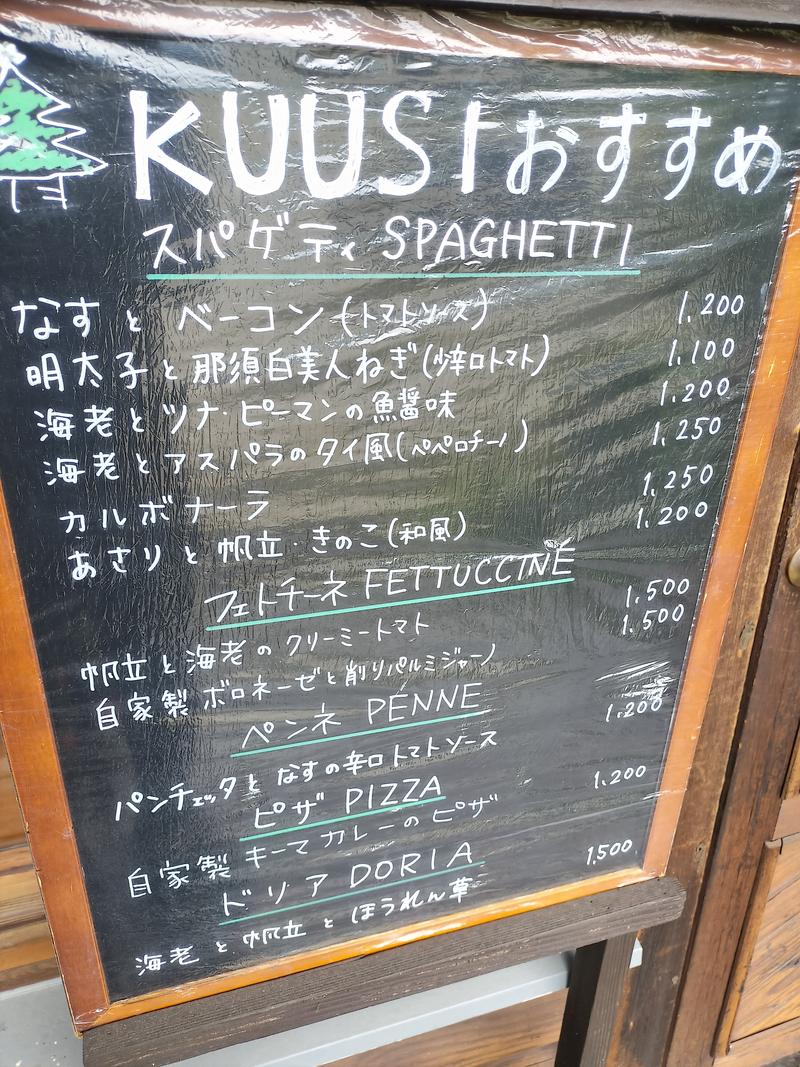 KUUSIおすすめ
スパゲティ SPAGHETTI
なすと ベーコン(トマトソース) 1,200
明太子と那須白美人ねぎ(少辛口トマト) 1,100
海老とツナ・ピーマンの魚醤味 1,200
海老とアスパラのタイ風(ペペロチーノ) 1,250
カルボナーラ 1,250
あさりと帆立・きのこ(和風) 1,200
フェトチーネ FETTUCCINE
帆立と海老の クリーミートマト 1,500
自家製 ボロネーゼと削りパルミジャーノ 1,500
ペンネ PENNE
パンチェッタと なすの辛口トマトソース 1,200
ピザ PIZZA
自家製 キーマカレーのピザ 1,200
ドリア DORIA
海老と帆立とほうれん草 1,500